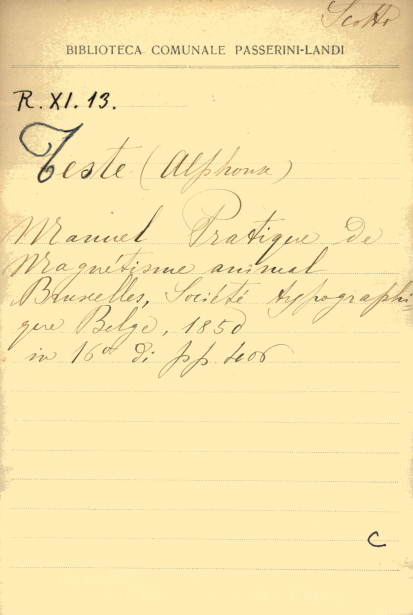 Scotto
BIBLIOTECA COMUNALE PASSERINI-LANDI
R. XI. 13.
Teste (Alphonse)
Manuel Pratique de
Magnétisme animal
Bruxelles, Société typographi-
que Belge, 1850
in 16° di pp. 406
C